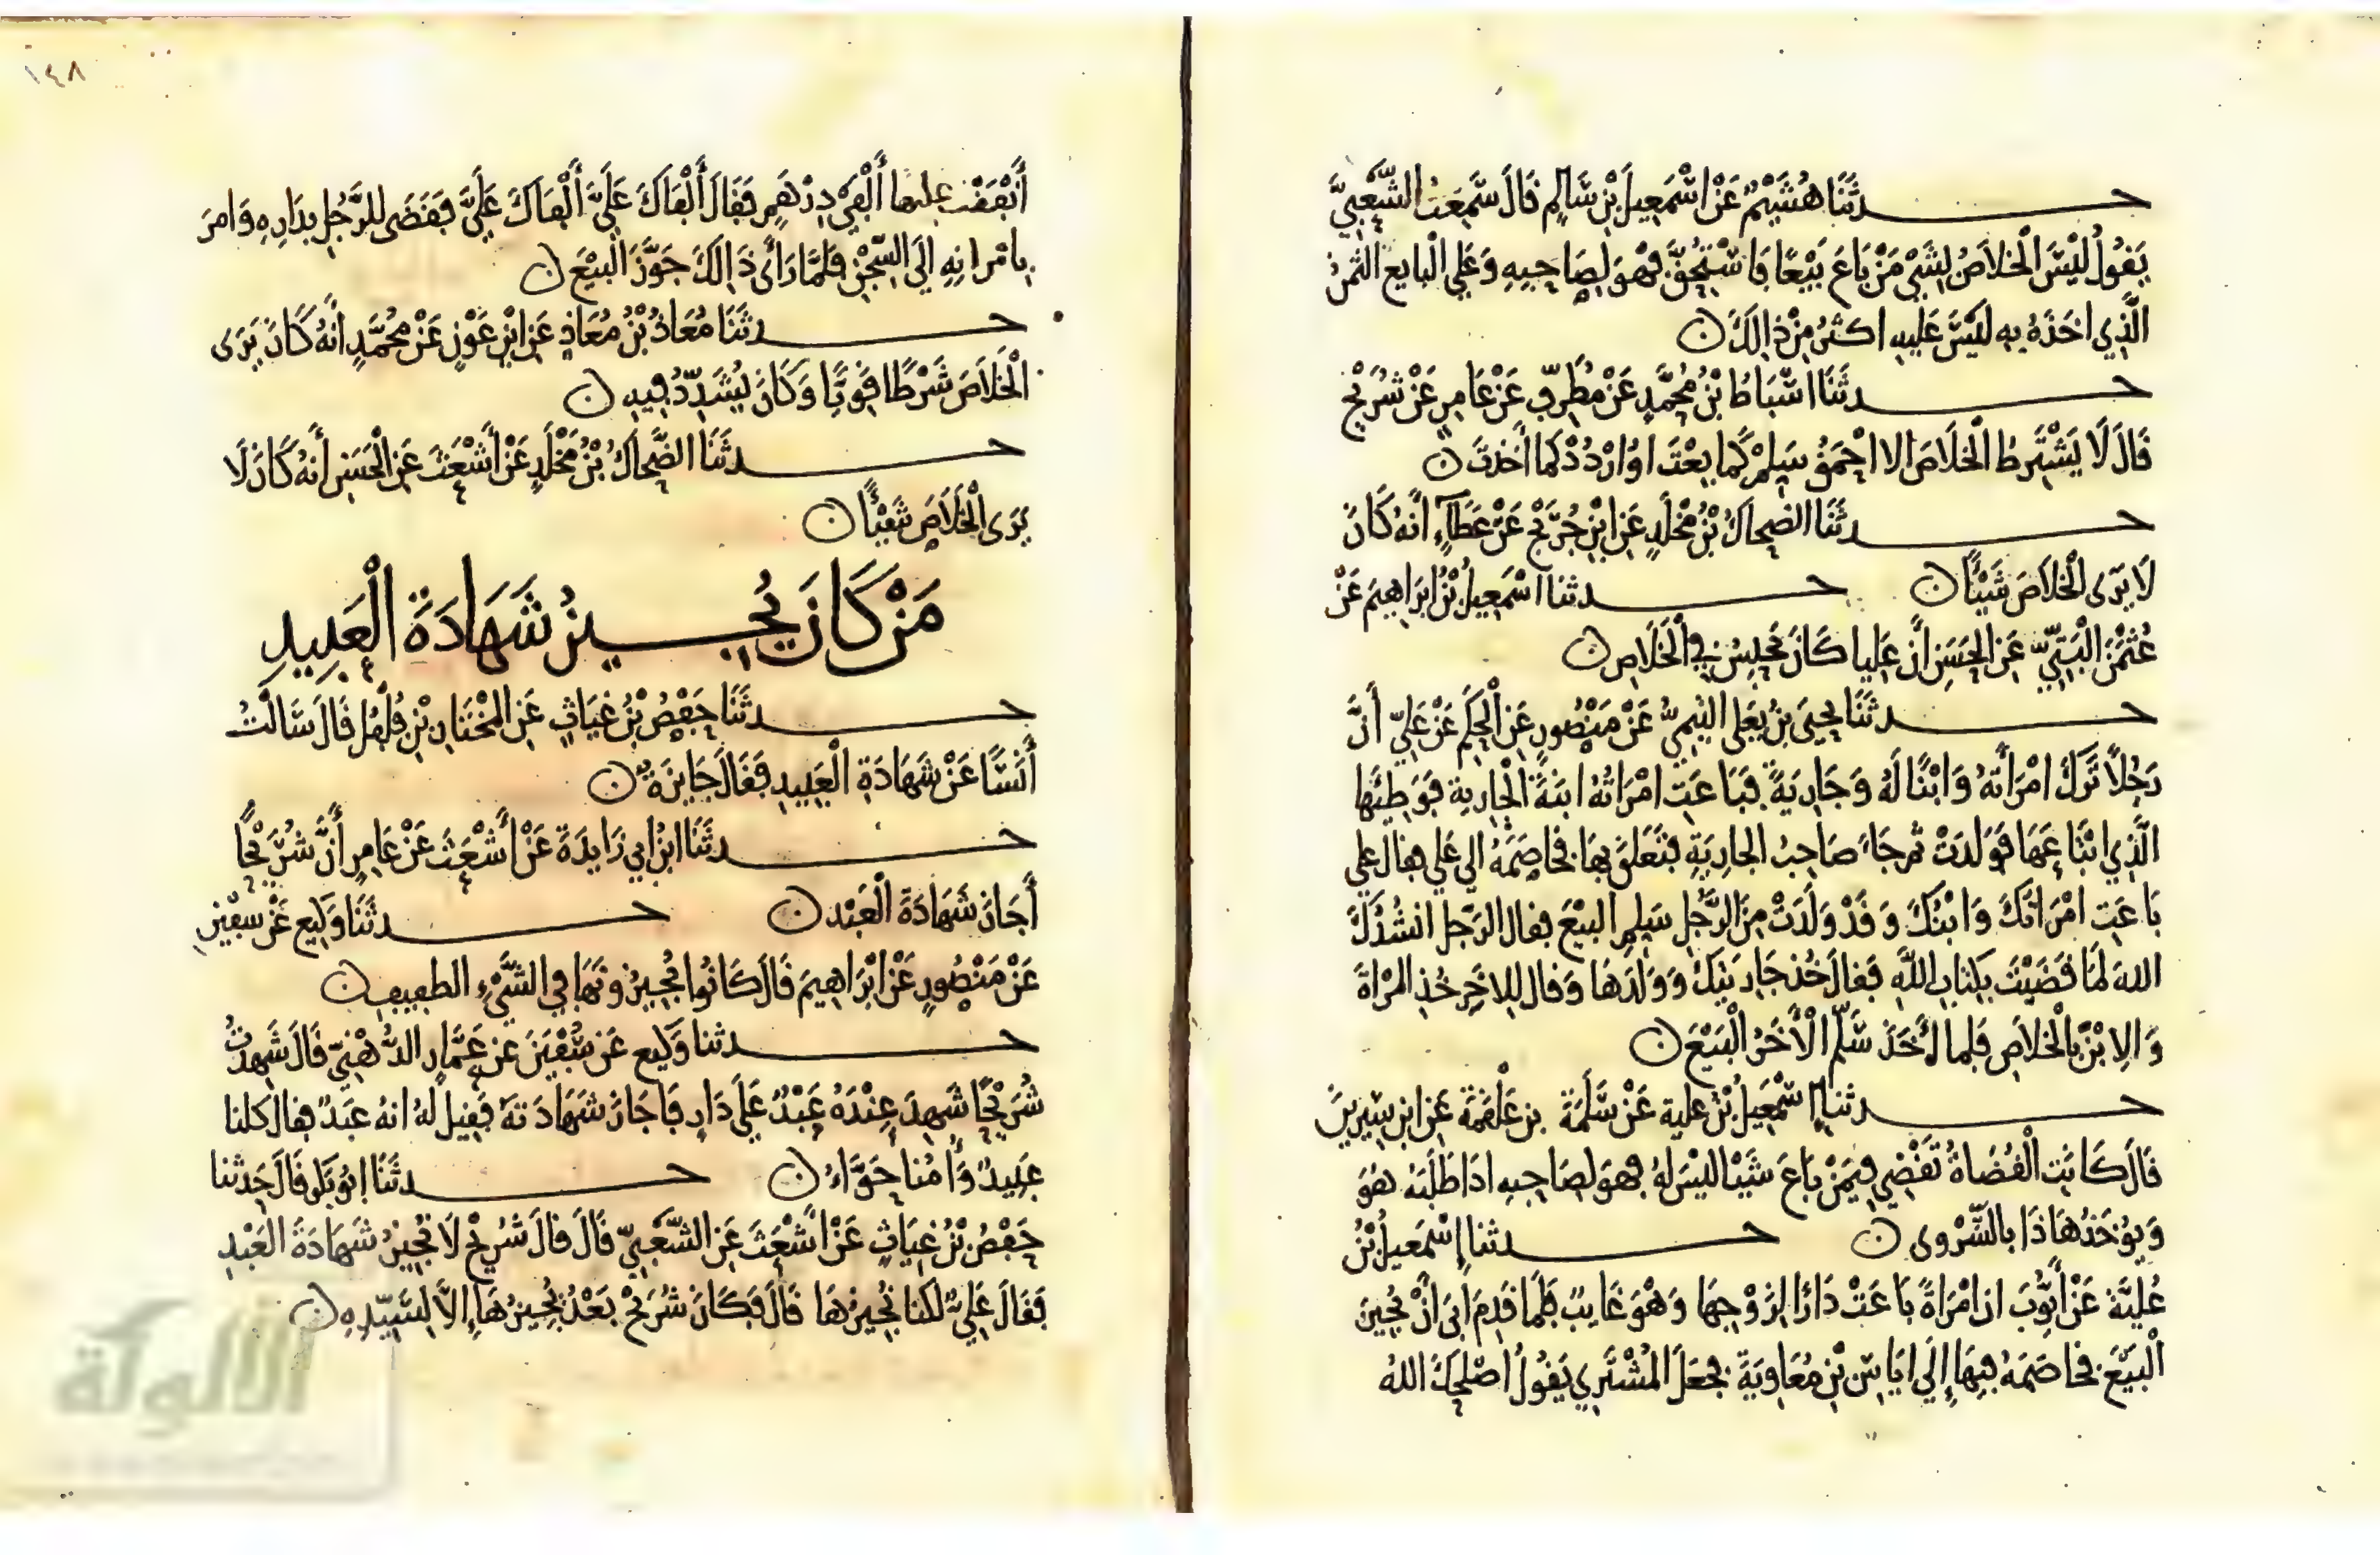 حدثنا هُشَيْم عَنْ اسْمَعِيلَ بْنِ سَالِم قَالَ سَمِعَتُ الشَّعْبِيَّ
يَقُولُ لَيْسَ الْخَلاَصُ بِشَيْ مَنْ بَاعَ بَيْعًا فَاسْتُحِقَّ فَهْوَ لِصَاحِبِهِ وَعَلَى الْبايع الثمنُ
الَّذِي اخَذَهُ بِهِ لَيْسَ عَلَيهِ اكثَرُ مِنْ ذالِكَ ن
حدثَنَا اسْبَاطُ بْنُ مُحَمَّدٍ عَنْ مُطَرِّفٍ عَنْ عَامِرٍ عَنْ شُرَيْحٍ
قَالَ لَا يَشْتَرِطُ الْخَلاَصَ الا احْمَقُ سَلِّمْ كَما بِعْتَ اوُ ارْدُدْ كَما أَخَذتَ ن
حدثَنَا الضحاكُ بْنُ مَخْلَدٍ عَنِ ابْنِ جُرَيْجٍ عَنْ عَطَآءٍ أَنَّهُ كَانَ
لَا يَرَى الْخَلاَصَ شَيْئًا ن حدثنا اسْمَعِيلُ بْنُ ابرَاهِيمَ عَنْ
عُثْمٰنَ الْبَتِّيِّ عَنِ الْحَسَنِ انَّ عَلِيا كَانَ يَحْبِسُ فِي الْخَلَاصِ ن
حدثَنَا يَحيَى بنُ يَعْلَى التيميُّ عَنْ مَنْصُورٍ عَنِ الْحَكَمِ عَنْ عَلِيٍّ أَنَّ
رَجُلاً تَرَكَ امْرَأتَهُ وَابْنًا لَهُ وَجَارِيَةً فَبَاعَتِ امْرَاتُهُ ابنَهُ الْجَارِيةَ فَوَطِئَهَا
الَّذِي ابْتَاعَهَا فَوَلَدَتْ ثم جَاءَ صَاحِبُ الجارِيَةِ فَتَعَلَّقَ بهَا فَخاصَمَهُ الي عَلي فقال علي
بَاعَتِ امْرَاتُكَ وَابْنُكَ وَقَدْ وَلَدَتْ مِنَ الرَّجُلِ سَلِّمِ البيْعَ فقال الرَّجل انشُدُكَ
اللهَ لَمَا قَضَيْتَ بِكتابِ اللَّهِ فَقالَ خُذ جَارِيَتَكَ وَوَلَدَهَا وَقال لِلاخَرِ خُذِ المَرْاةَ
وَالِابْنَ بِالْخَلاَصِ فَلما أُخِذَ سَلَّمَ الْأخَرُ الْبَيْعَ ن
حدثنا إسْمَعِيلُ بْنُ علية عَنْ سَلَمَةَ بن عَلْقَمَةَ عَنِ ابن سِيرِينَ
قَالَ كَانَتِ الْقُضَاةُ تَقْضِي فِيمَنْ بَاعَ شَيْئا لَيْسَ لَهُ فهوَ لصَاحِبِهِ اذَا طَلَبَهُ هُوَ
وَيُؤخَذُ هَاذَا بِالشَّرْوى ن حدثنا إِسْمَعِيلُ بْنُ
عُلَيَّةَ عَنْ أَيُّوبَ ان امْرَاةً بَاعَتْ دَارًا لِزَوْجِهَا وَهْوَ غَايِبٌ فَلَمَا قَدِمَ ابَى انْ يُجِيزَ
الْبَيْعَ فَخاصَمَهُ فِيهَا إِلَى ايَاسِ بْنِ مُعَاوِيَةَ فَجعَلَ الْمُشْتَرِي يَقُولُ اصْلَحَكَ اللهُ
١٤٨
أَنفَقْت عليها ألْفَيْ دِرْهَمٍ فَقَالَ أَلْفَاكَ عَلَيَّ أَلْفَاكَ عَلَيَّ فَقَضَى للرَّجُلِ بِدَارِهِ وَامرَ
بِامْرَاتِهِ إِلَى السِّجْنِ فَلَمَّا رَأَى ذَالِكَ جَوَّزَ الْبَيْعَ ن
حدثَنَا مُعَاذُ بْنُ مُعَاذٍ عَنِ ابْنِ عَوْنٍ عَنْ مُحَمَّدٍ انَّهُ كَانَ يَرَى
الْخَلَاصَ شَرْطًا قَوِيًّا وَكَانَ يُشَدِّدُ فِيهِ ن
حدثَنَا الضَّحاكُ بْنُ مَخْلَدٍ عَنْ أَشْعَثَ عَنِ الْحَسَنِ أَنهُ كَانَ لَا
يَرَى الْخَلَاصَ شَيْئًا ن
مَنْ كَانَ يُجِيزُ شَهَادَةَ الْعَبِيدِ
حدثَنَا حَفْصُ بْنُ غِيَاثٍ عَنِ المُخْتَارِ بْنِ فُلْفُلٍ قَالَ سَأَلْتُ
أَنَسًا عَنْ شَهَادَةِ الْعَبِيدِ فَقَالَ جَايِزَةٌ ن
حدثَنَا ابْنُ ابي زَايِدَةَ عَنْ أَشْعَثَ عَنْ عَامِرٍ أَنَّ شُرَيْحًا
أَجَازَ شَهَادَةَ الْعَبْدِ ن حدثَنَا وَكِيع عَنْ سفْيٰنَ
عَنْ مَنْصُورٍ عَنْ ابْرَاهِيمَ قَالَ كَانُوا يُجِيزُونَهَا فِي الشَّيْءِ الطفِيفِ ن
حدثنا وَكِيع عَن سُفْيٰنَ عن عَمَّارٍ الدُّهْنِيِّ قَالَ شَهِدتُ
شُرَيْحًا شَهِدَ عِنْدَهُ عَبْدٌ عَلَى دَارٍ فَاجَازَ شَهَادَتَهُ فَقِيلَ لَهُ انهُ عَبْدٌ فقال كلنا
عَبِيدٌ وَأُمُّنا حَوَّاءُ ن حدثَنَا ابُو بَكرٍ قَالَ حَدثنا
حَفْصُ بْنُ غِيَاثٍ عَنْ أَشْعَثَ عَنِ الشَّعْبِيِّ قَالَ قَالَ شُرَيْحٌ لَا نُجِيزُ شَهَادَةَ العَبْدِ
فَقَالَ عَلِيٌّ لكنا نُجِيزُهَا قَالَ فَكَانَ شُرَيْحٌ بَعْدُ يُجِيزُهَا إِلاَّ لِسَيِّدِهِ ن
الألوكة